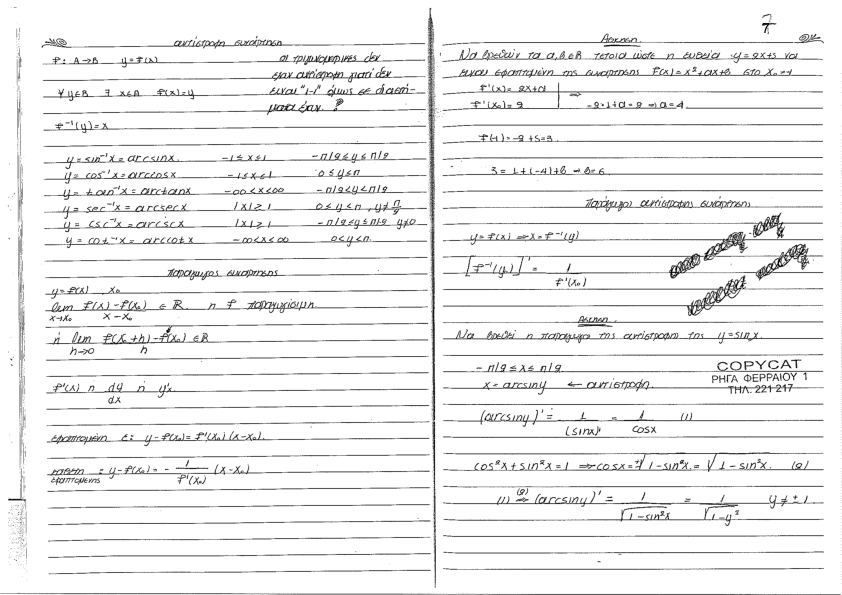 αντίστροφη συνάρτηση
f: A→B y=f(x)
οι τριγωνομετρικές δεν
έχουν αντίστροφη γιατί δεν
είναι "1-1" όμως σε διαστή-
ματα είναι. ?
∀ y∈B ∃ x∈A f(x)=y
f⁻¹(y)=x
y=sin⁻¹x=arcsinx. -1≤x≤1 -π/2≤y≤π/2
y=cos⁻¹x=arccosx -1≤x≤1 0≤y≤π
y=tan⁻¹x=arctanx -∞<x<∞ -π/2<y<π/2
y=sec⁻¹x=arcsecx |x|≥1 0≤y≤π, y≠π/2
y=csc⁻¹x=arccscx |x|≥1 -π/2≤y≤π/2 y≠0
y=cot⁻¹x=arccotx -∞<x<∞ 0<y<π
παράγωγος συνάρτησης
y=f(x) , x₀
lim x→x₀ (f(x)-f(x₀))/(x-x₀) ∈ℝ. η f παραγωγίσιμη.
ή lim h→0 (f(x₀+h)-f(x₀))/h ∈ℝ
f'(x) ή dy/dx ή y'x
εφαπτομένη ε: y-f(x₀)=f'(x₀)(x-x₀).
: y-f(x₀)= - 1/f'(x₀) (x-x₀)
εφαπτομένης
7
Άσκηση.
Να βρεθούν τα α,β∈ℝ τέτοια ώστε η ευθεία y=2x+5 να
είναι εφαπτομένη της συνάρτησης f(x)=x²+αx+β στο x₀=-1
f'(x)=2x+α
⇒
f'(x₀)=2 -2·1+α=2 ⇒ α=4.
f(-1)=-2+5=3.
3=1+(-4)+β ⇒ β=6.
παράγωγος αντίστροφης συνάρτησης
y=f(x) ⇒ x=f⁻¹(y)
[f⁻¹(y)]' = 1/f'(x₀)
Άσκηση.
Να βρεθεί η παράγωγος της αντίστροφη της y=sinx.
-π/2≤x≤π/2
x=arcsiny ← αντίστροφη.
COPYCAT
ΡΗΓΑ ΦΕΡΡΑΙΟΥ 1
ΤΗΛ. 221 217
(arcsiny)' = 1/(sinx)' = 1/cosx (1)
cos²x+sin²x=1 ⇒ cosx=±√1-sin²x = √1-sin²x. (2)
(1) (2)⇒ (arcsiny)' = 1/√1-sin²x = 1/√1-y² y≠±1